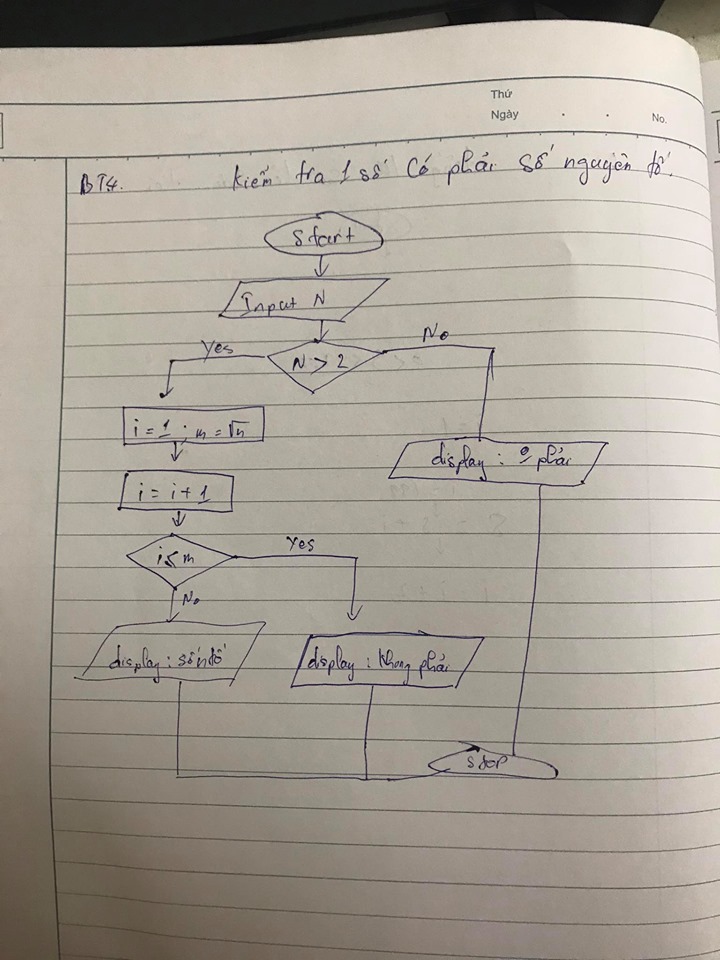 Thứ
Ngày . . No.
BT4. Kiểm tra 1 số Có phải số nguyên tố.
Start
Input N
N > 2
Yes
No
i = 1 ; m = √n
display : o phải
i = i + 1
i ≤ m
Yes
No
display : số n tố
display : Không phải
Stop